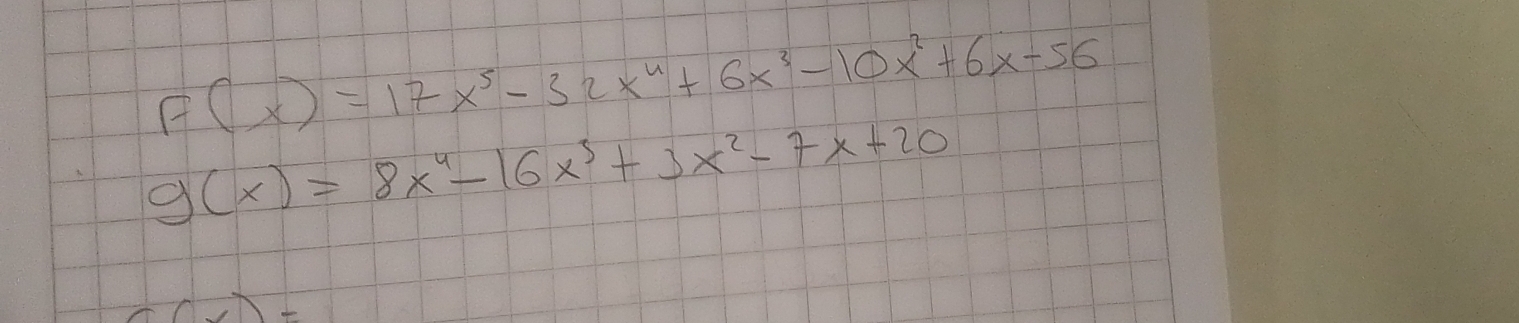 F(x) = 17x⁵ - 32x⁴ + 6x³ - 10x² + 6x + 56
g(x) = 8x⁴ - 16x³ + 3x² - 7x + 20